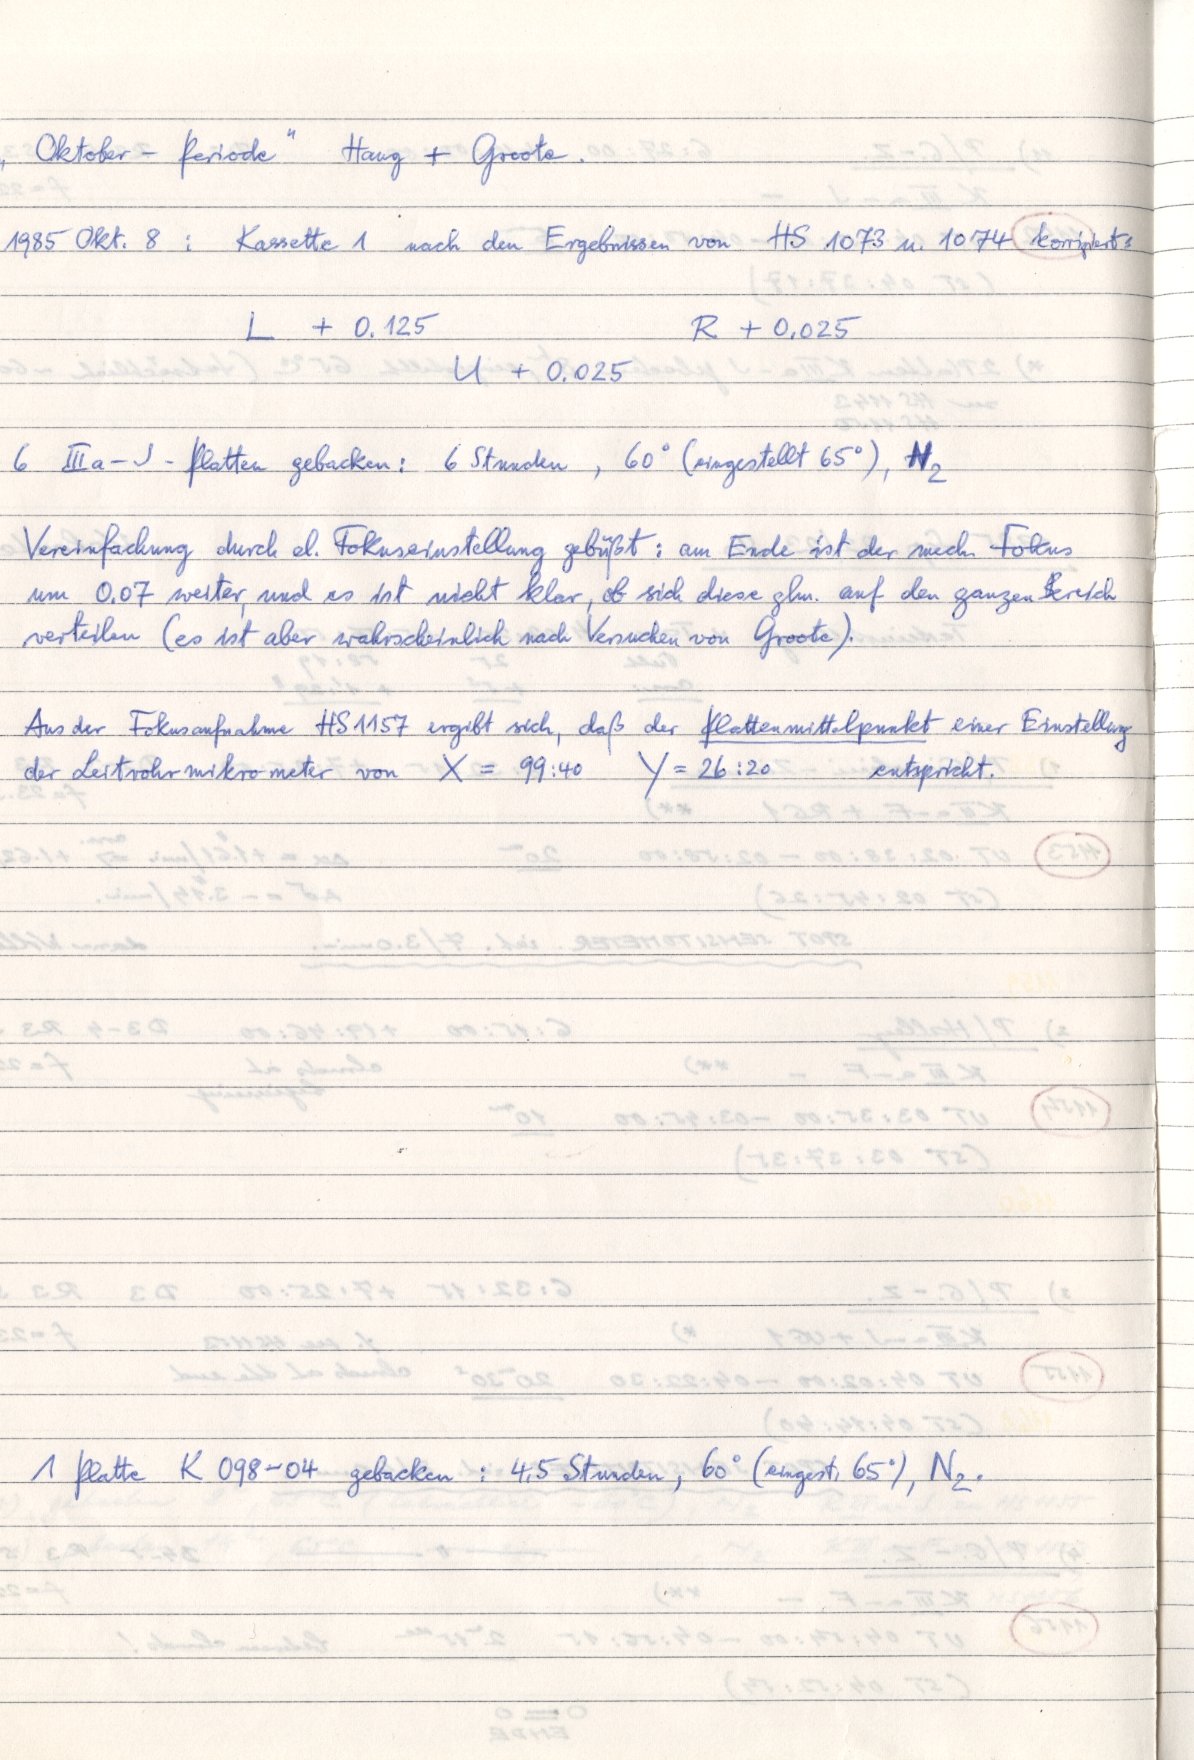 „Oktober-Periode" Haug + Groote.
1985 Okt. 8 : Kassette 1 nach den Ergebnissen von HS 1073 u. 1074 korrigiert:
L + 0.125 R + 0.025
U + 0.025
6 IIIa-J-Platten gebacken: 6 Stunden, 60° (eingestellt 65°), N2
Vereinfachung durch el. Fokuseinstellung gebüßt: am Ende ist der mech. Fokus
um 0.07 weiter, und es ist nicht klar, ob sich diese glm. auf den ganzen Bereich
verteilen (es ist aber wahrscheinlich nach Versuchen von Groote).
Aus der Fokusaufnahme HS1157 ergibt sich, daß der Plattenmittelpunkt einer Einstellung
der Leitrohrmikrometer von X = 99:40 Y = 26:20 entspricht.
1 Platte K 098-04 gebacken : 4,5 Stunden, 60° (eingest. 65°), N2.